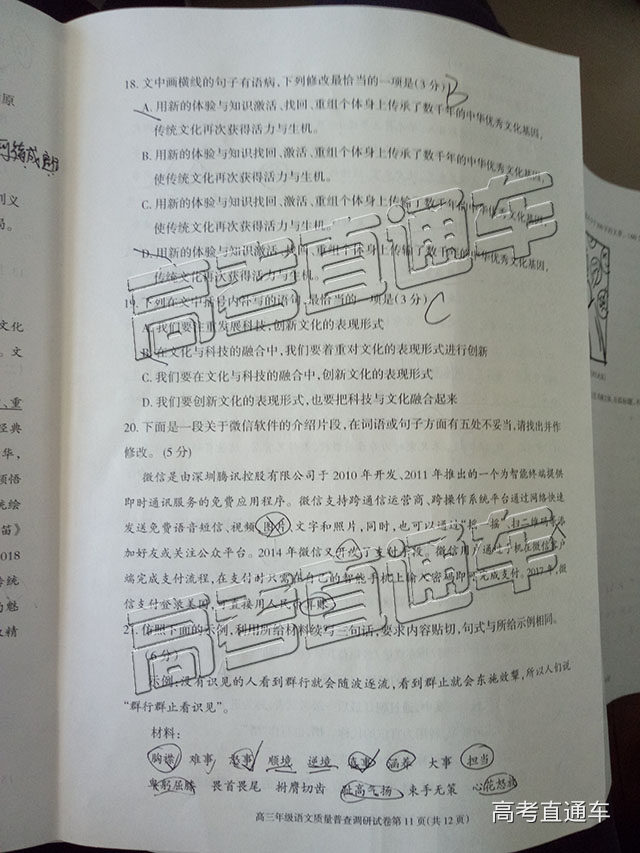 18. 文中画横线的句子有语病,下列修改最恰当的一项是(3分) B
A. 用新的体验与知识激活、找回、重组个体身上传承了数千年的中华优秀文化基因,
传统文化再次获得活力与生机。
B. 用新的体验与知识找回、激活、重组个体身上传承了数千年的中华优秀文化基因,
使传统文化再次获得活力与生机。
C. 用新的体验与知识找回、激活、重组个体身上传输了数千年的中华优秀文化基因,
使传统文化再次获得活力与生机。
D. 用新的体验与知识激活、找回、重组个体身上传输了数千年的中华优秀文化基因,
传统文化再次获得活力与生机。
19. 下列在文中括号内补写的语句,最恰当的一项是(3分) C
A. 我们要注重发展科技,创新文化的表现形式
B. 在文化与科技的融合中,我们要着重对文化的表现形式进行创新
C. 我们要在文化与科技的融合中,创新文化的表现形式
D. 我们要创新文化的表现形式,也要把科技与文化融合起来
20. 下面是一段关于微信软件的介绍片段,在词语或句子方面有五处不妥当,请找出并作
修改。(5分)
微信是由深圳腾讯控股有限公司于2010年开发、2011年推出的一个为智能终端提供
即时通讯服务的免费应用程序。微信支持跨通信运营商、跨操作系统平台通过网络快速
发送免费语音短信、视频、图片、文字和照片,同时,也可以通过“摇一摇”、扫二维码等添
加好友或关注公众平台。2014年微信又开发了支付手段。微信用户通过手机在微信客户
端完成支付流程,在支付时只需在自己的智能手机上输入密码即可完成支付。2017年,微
信支付登录美国,可直接用人民币
21. 仿照下面的示例,利用所给材料续写三句话,要求内容贴切,句式与所给示例相同。
(6分)
示例:没有识见的人看到群行就会随波逐流,看到群止就会东施效颦,所以人们说
“群行群止看识见”。
材料:
胸襟 难事 顺境 逆境 涵养 大事 担当
卑躬屈膝 畏首畏尾 拊膺切齿 趾高气扬 束手无策 心花怒放
高三年级语文质量普查调研试卷第11页(共12页)
高考直通车
高考直通车
高考直通车